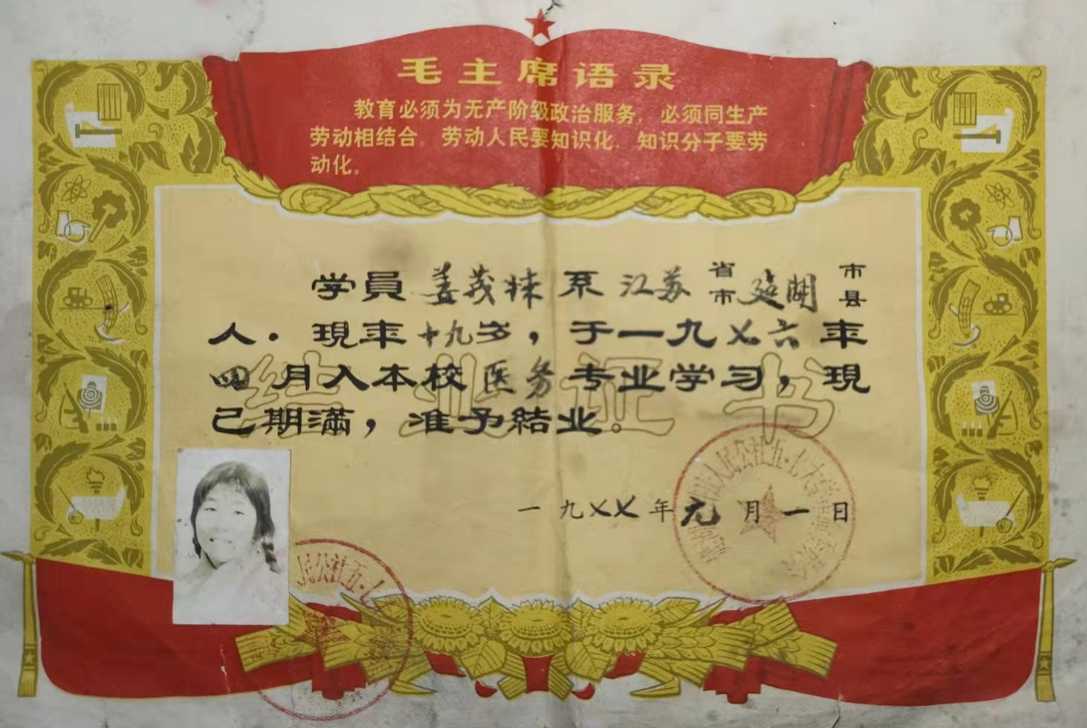 毛主席语录
教育必须为无产阶级政治服务，必须同生产
劳动相结合。劳动人民要知识化，知识分子要劳
动化。
结业证书
学員姜茂㭐系江苏省市建湖市县
人．現年十九岁，于一九乂六年
四月入本校医务专业学习，現
已期滿，准予結业。
一九乂乂年元月一日
人民公社五·七大学
民公社五·七